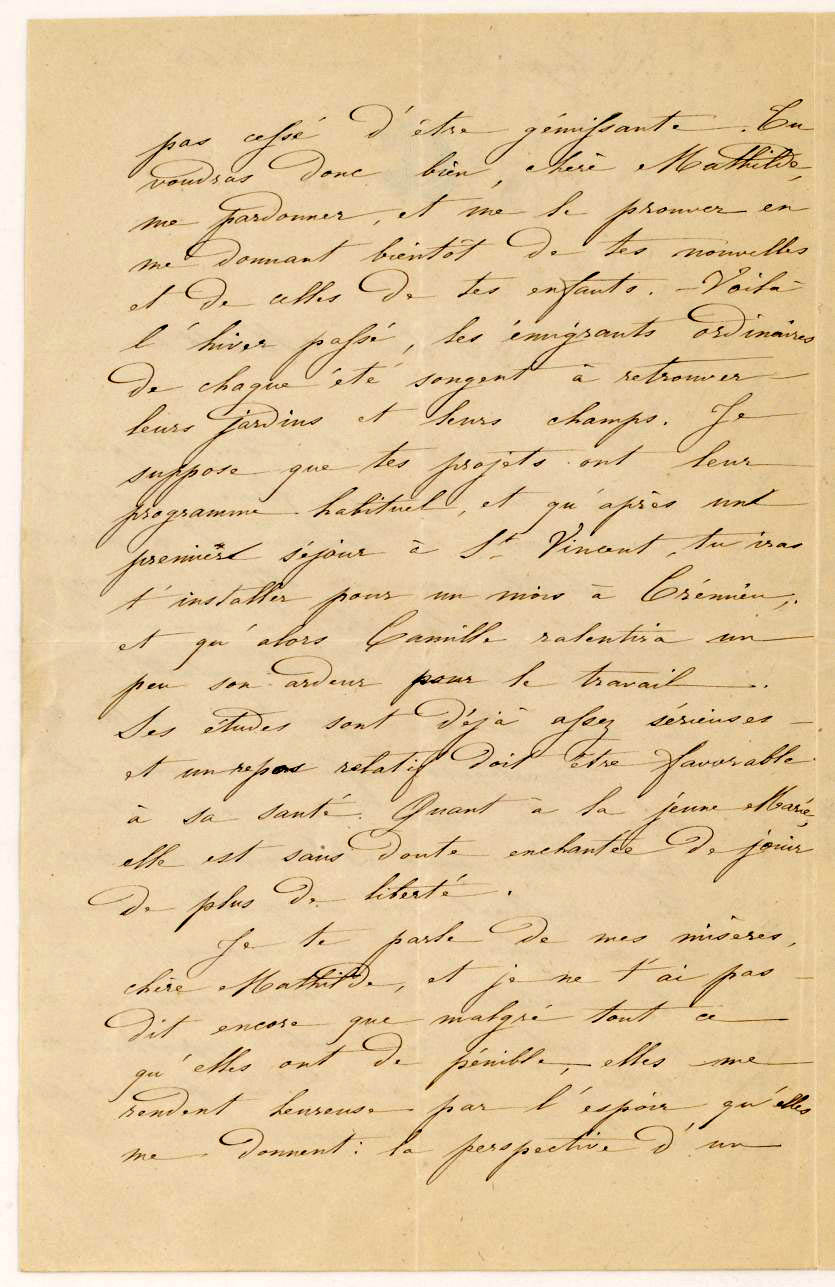 pas cessé d'être gémissante. Tu
voudras donc bien, chère Mathilde,
me pardonner, et me le prouver en
me donnant bientôt de tes nouvelles
et de celles de tes enfants. – Voilà
l'hiver passé, les émigrants ordinaires
de chaque été songent à retrouver
leurs jardins et leurs champs. Je
suppose que tes projets ont leur
programme habituel, et qu'après un
premier séjour à St Vincent, tu iras
t'installer pour un mois à Crémieu,
et qu'alors Camille ralentira un
peu son ardeur pour le travail.
Ses études sont déjà assez sérieuses –
et un repos relatif doit être favorable
à sa santé. Quant à la jeune Marie,
elle est sans doute enchantée de jouir
de plus de liberté.
Je te parle de mes misères,
chère Mathilde, et je ne t'ai pas
dit encore que malgré tout ce
qu'elles ont de pénible, elles me
rendent heureuse par l'espoir qu'elles
me donnent : la perspective d'un